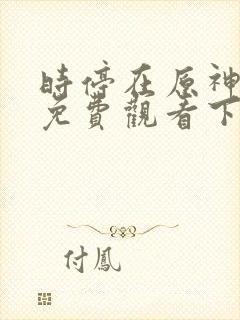 時停在原神
免費觀看下
付鳳